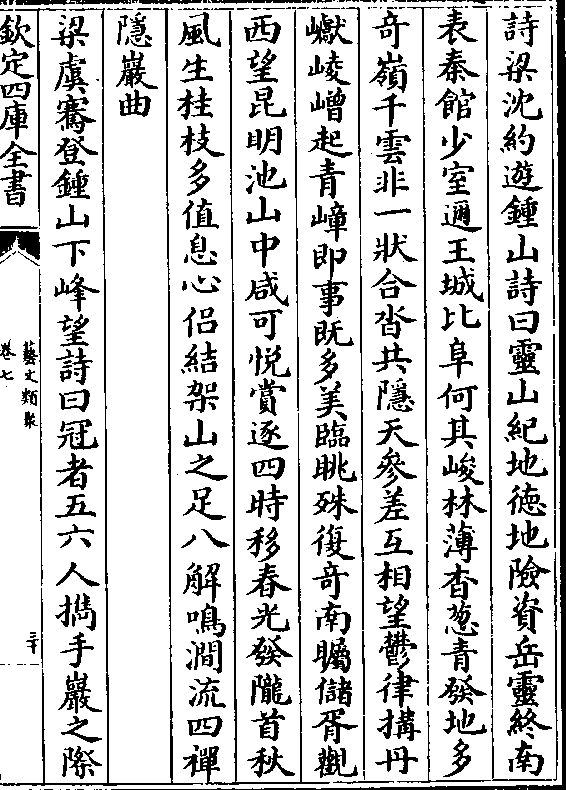 詩梁沈約遊鍾山詩曰靈山紀地徳地險資岳靈終南
表秦館少室邇王城比阜何其峻林薄杳葱青發地多
奇嶺千雲非一狀合沓共隱天參差互相望鬱律搆丹
巘崚嶒起青嶂即事既多美臨眺殊復奇南矚儲胥觀
西望昆明池山中咸可悦賞逐四時移春光發隴首秋
風生桂枝多值息心侶結架山之足八解鳴澗流四禪
隱巖曲
梁虞騫登鍾山下峰望詩曰冠者五六人擕手巖之際
欽定四庫全書
藝文類聚
卷七
三十